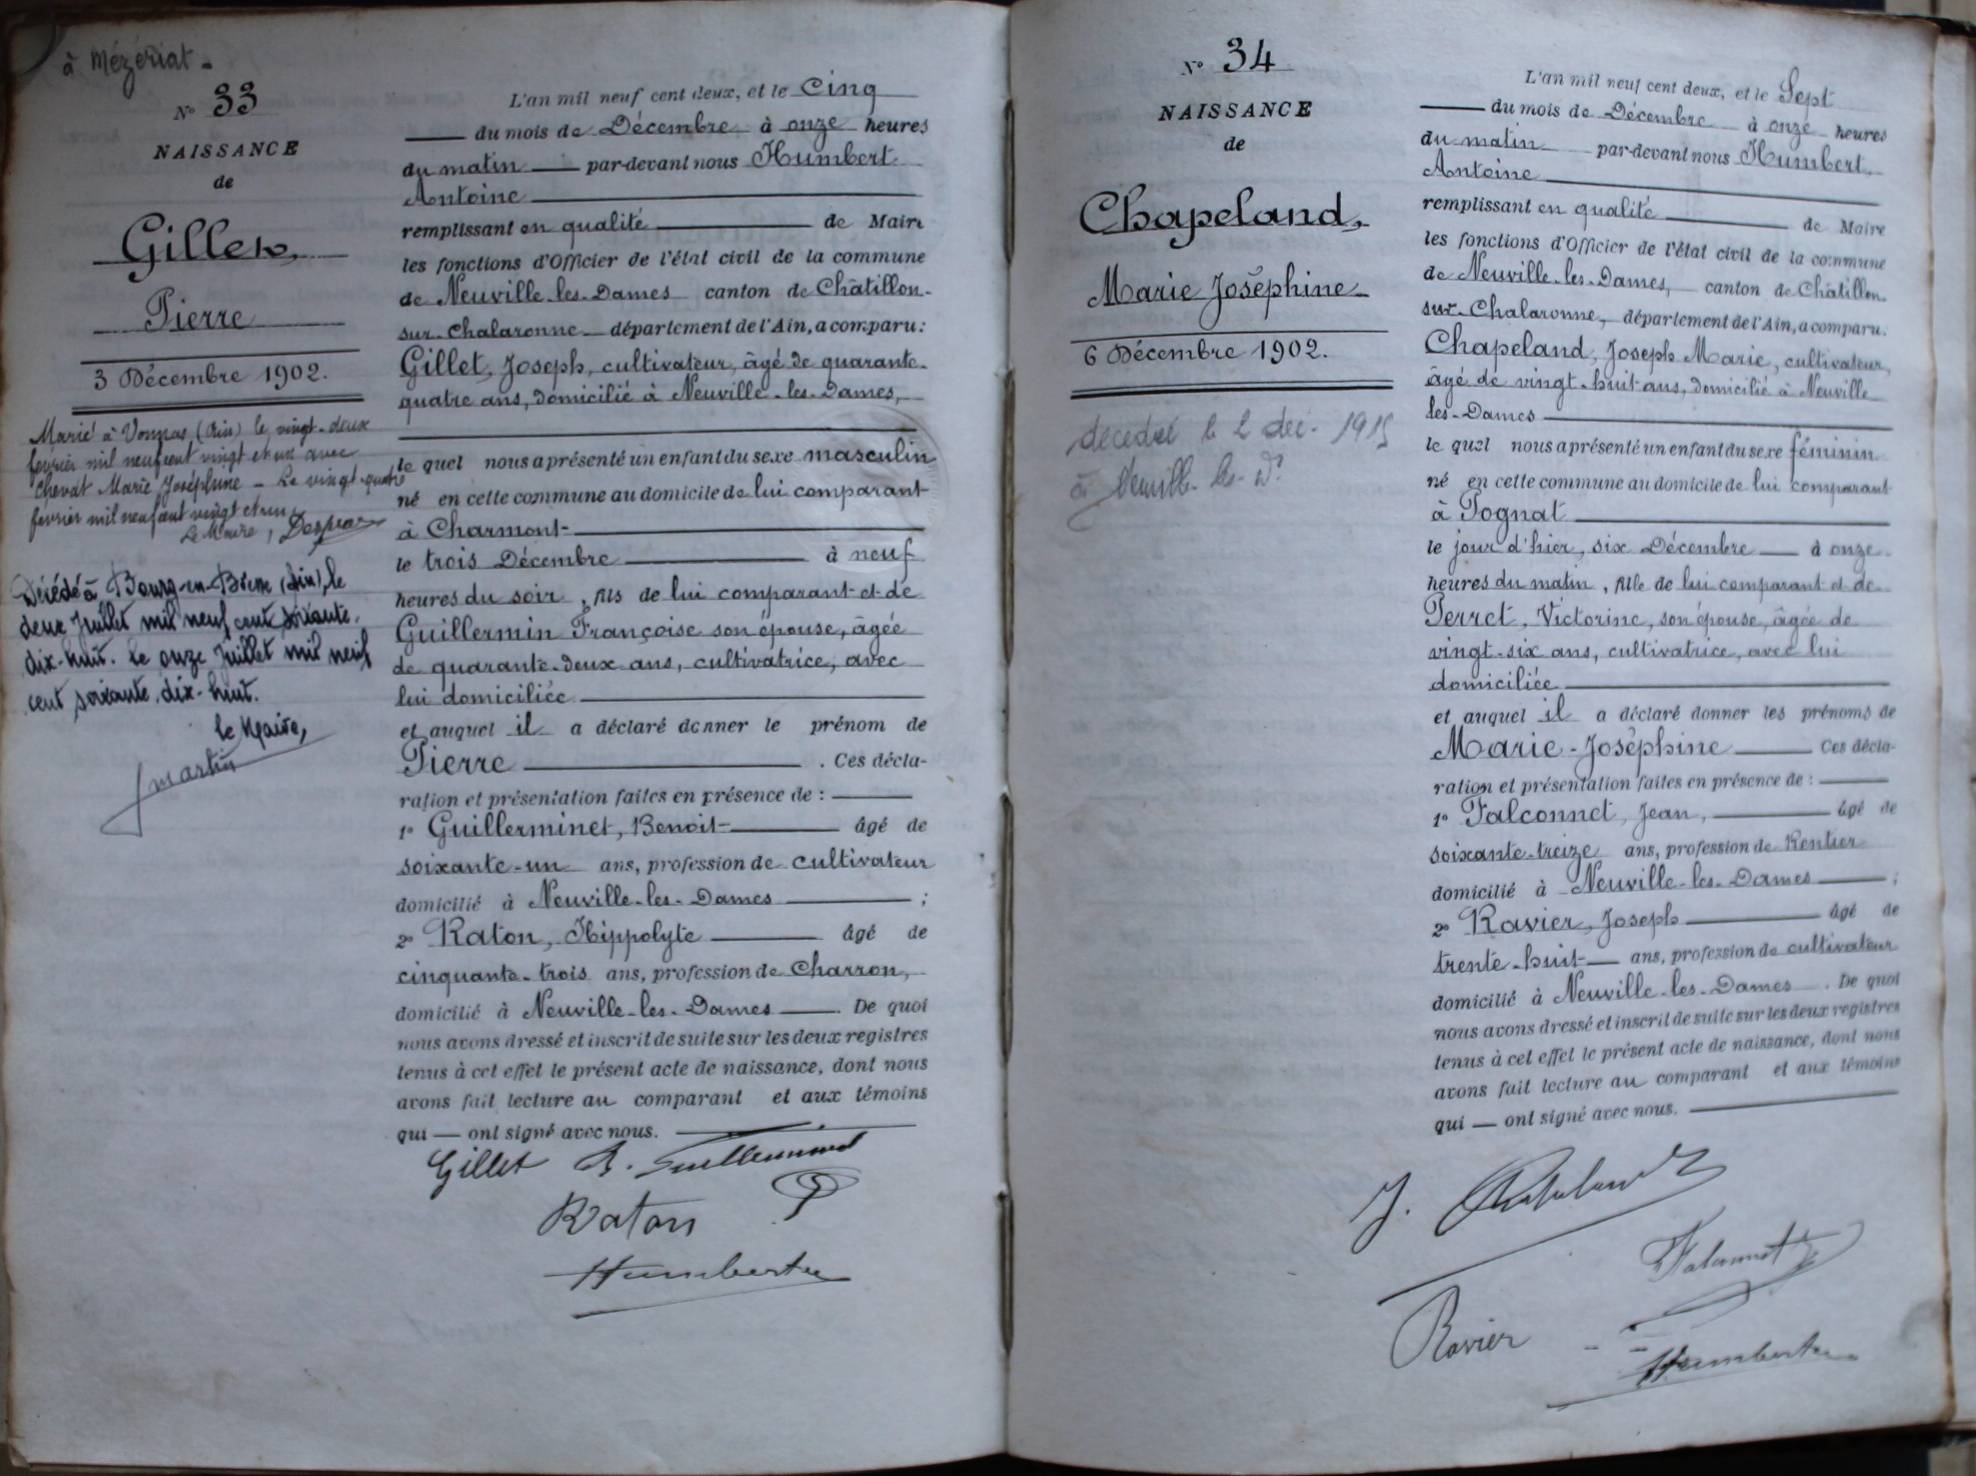 à Mézériat -
N° 33
NAISSANCE
de
Gillet,
Pierre
3 Décembre 1902.
Marié à Vonnas (Ain) le vingt-deux
février mil neuf cent vingt et un avec
Chevat Marie Joséphine - Le vingt-quatre
février mil neuf cent vingt et un.
Le Maire,
Décédé à Bourg-en-Bresse (Ain), le
deux Juillet mil neuf cent soixante.
dix-huit. Le onze Juillet mil neuf
cent soixante.dix-huit.
le Maire,
Martin
L'an mil neuf cent deux, et le Cinq
du mois de Décembre à onze heures
du matin par-devant nous Humbert
Antoine
remplissant en qualité de Maire
les fonctions d'Officier de l'état civil de la commune
de Neuville-les-Dames canton de Châtillon-
sur-Chalaronne département de l'Ain, a comparu:
Gillet, Joseph, cultivateur, âgé de quarante-
quatre ans, domicilié à Neuville-les-Dames,
le quel nous a présenté un enfant du sexe masculin
né en cette commune au domicile de lui comparant
à Charmont
le trois Décembre à neuf
heures du soir, fils de lui comparant et de
Guillermin Françoise son épouse, âgée
de quarante-deux ans, cultivatrice, avec
lui domiciliée
et auquel il a déclaré donner le prénom de
Pierre . Ces décla-
ration et présentation faites en présence de :
1° Guillerminet, Benoit âgé de
soixante-un ans, profession de cultivateur
domicilié à Neuville-les-Dames ;
2° Raton, Hippolyte âgé de
cinquante-trois ans, profession de Charron,
domicilié à Neuville-les-Dames . De quoi
nous avons dressé et inscrit de suite sur les deux registres
tenus à cet effet le présent acte de naissance, dont nous
avons fait lecture au comparant et aux témoins
qui — ont signé avec nous.
Gillet B. Guillerminet
Raton
Humbert
N° 34
NAISSANCE
de
Chapeland,
Marie Joséphine
6 Décembre 1902.
décédée le 2 déc. 1915
à Neuville-les-D.
L'an mil neuf cent deux, et le Sept
du mois de Décembre à onze heures
du matin par-devant nous Humbert
Antoine
remplissant en qualité de Maire
les fonctions d'Officier de l'état civil de la commune
de Neuville-les-Dames, canton de Châtillon-
sur-Chalaronne, département de l'Ain, a comparu.
Chapeland, Joseph Marie, cultivateur,
âgé de vingt-huit ans, domicilié à Neuville
les-Dames
le quel nous a présenté un enfant du sexe féminin
né en cette commune au domicile de lui comparant
à Pognat
le jour d'hier, six Décembre à onze
heures du matin, fille de lui comparant et de
Perret, Victorine, son épouse, âgée de
vingt-six ans, cultivatrice, avec lui
domiciliée
et auquel il a déclaré donner les prénoms de
Marie-Joséphine Ces décla-
ration et présentation faites en présence de :
1° Falconnet, Jean, âgé de
soixante-treize ans, profession de Rentier
domicilié à Neuville-les-Dames ;
2° Ravier, Joseph âgé de
trente-huit ans, profession de cultivateur
domicilié à Neuville-les-Dames . De quoi
nous avons dressé et inscrit de suite sur les deux registres
tenus à cet effet le présent acte de naissance, dont nous
avons fait lecture au comparant et aux témoins
qui — ont signé avec nous.
J. Chapeland
Falconnet
Ravier
Humbert